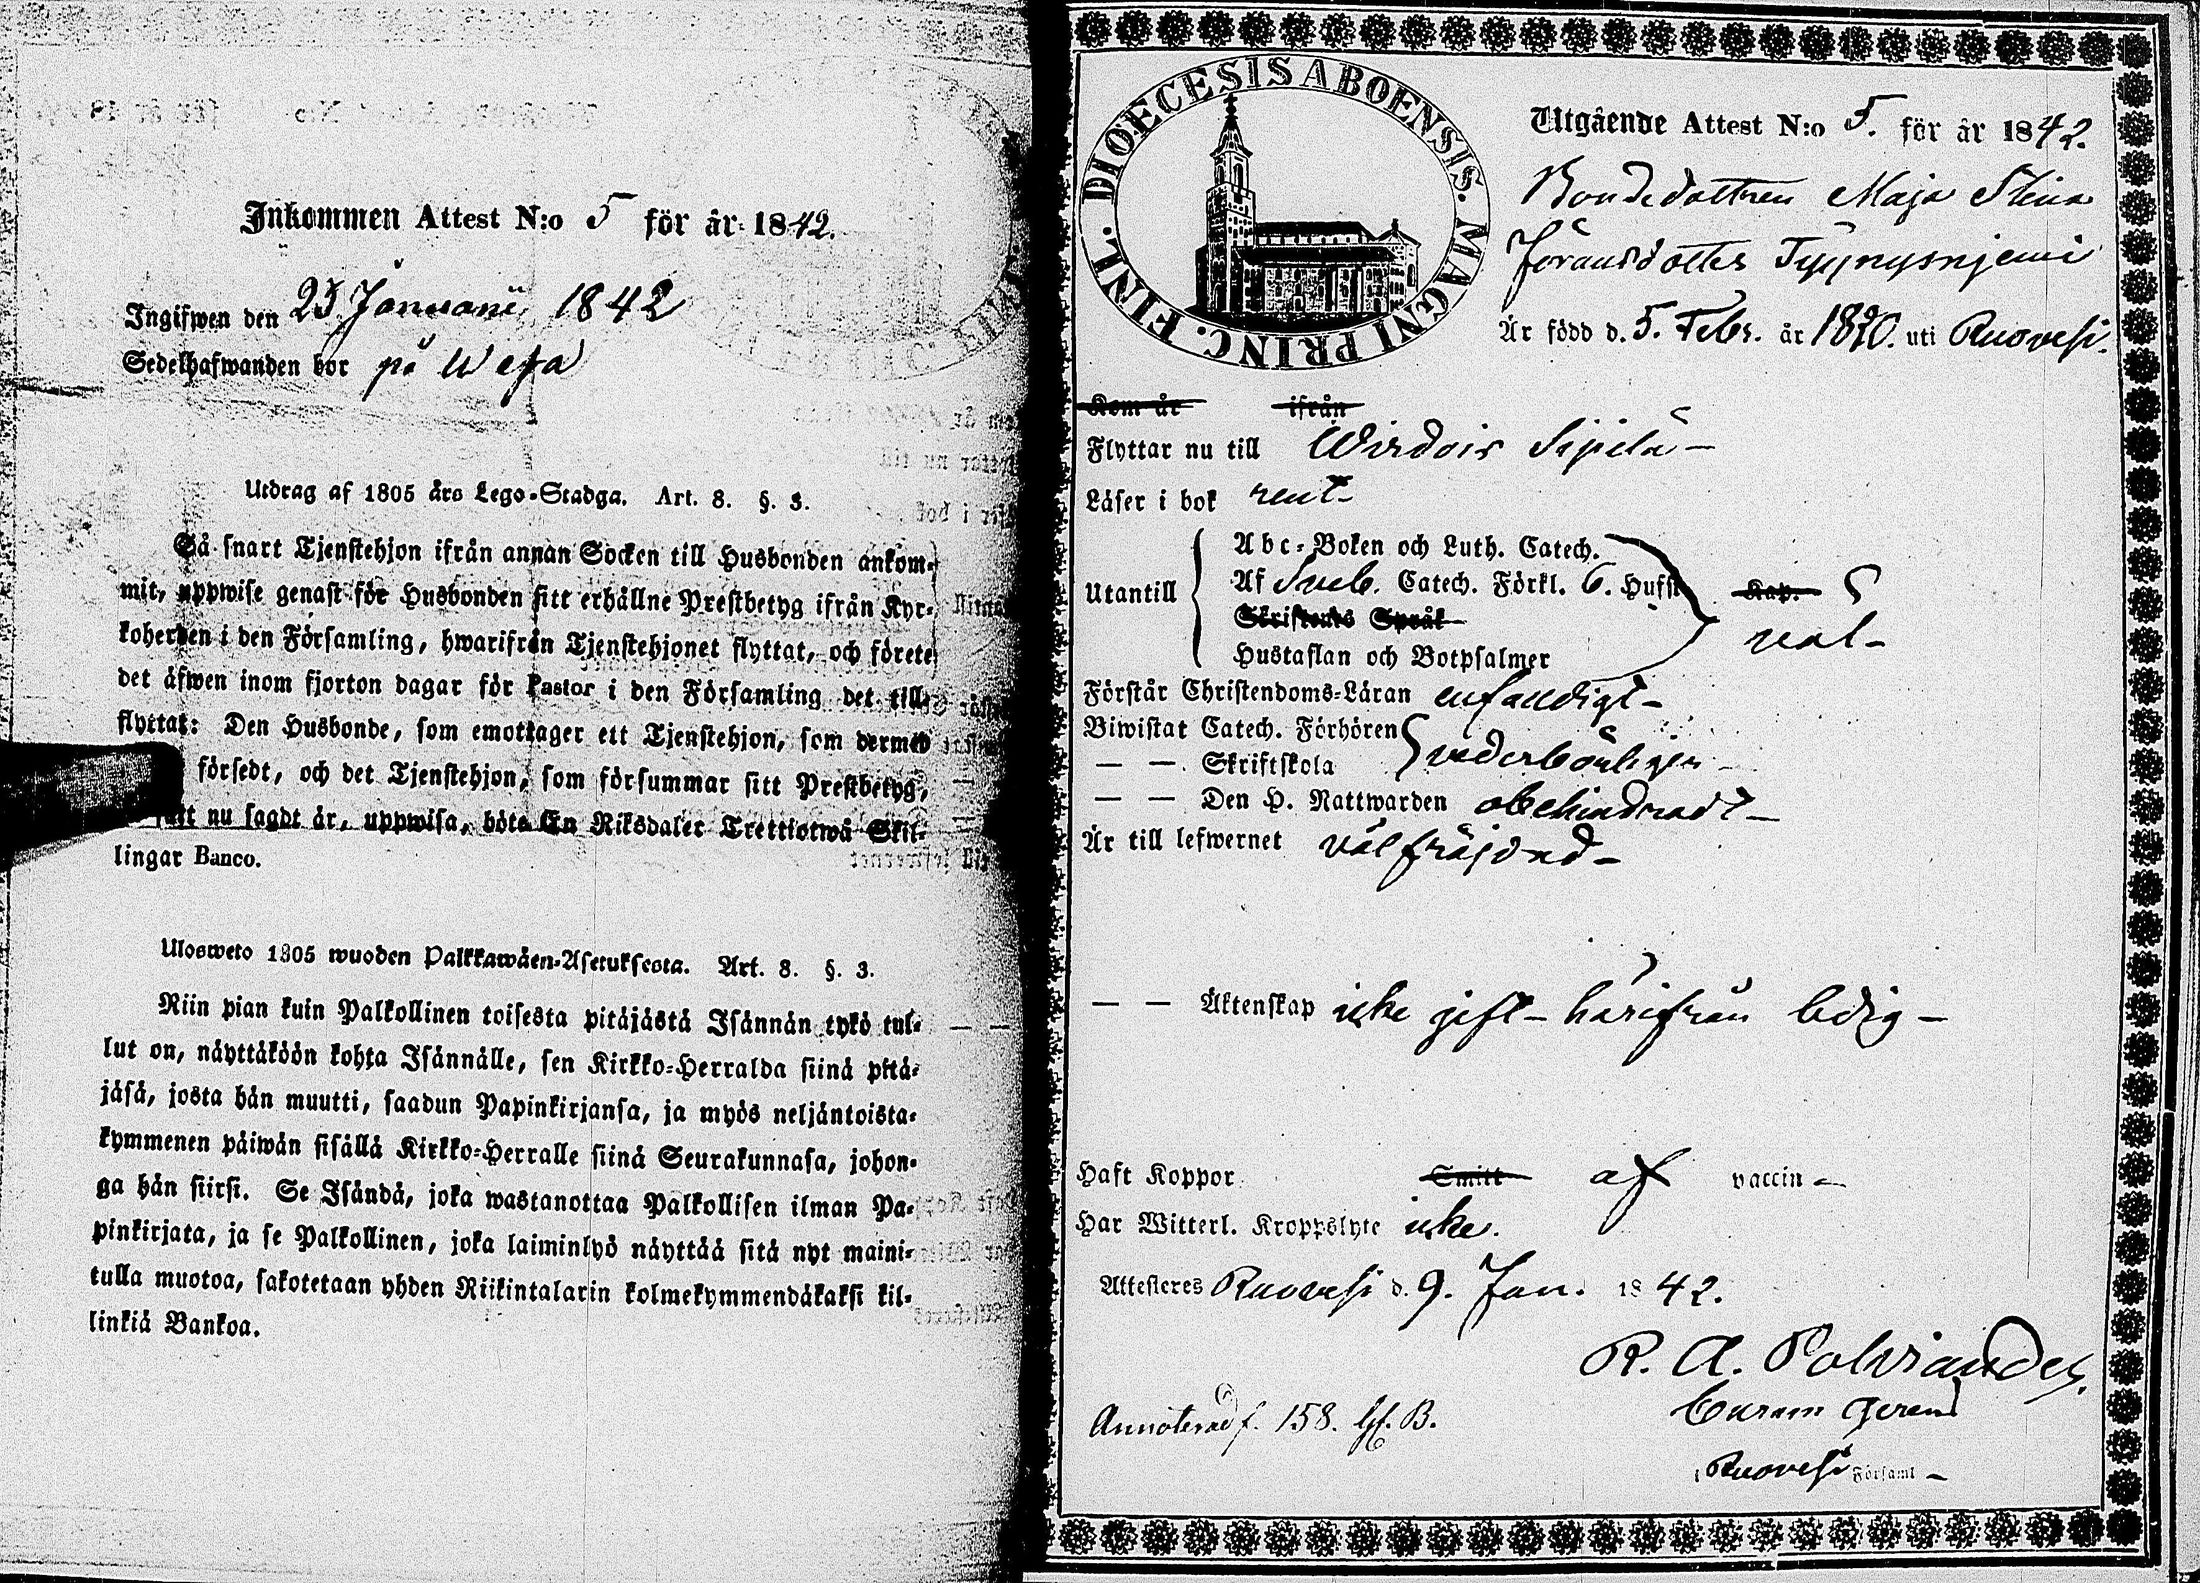 Inkommen Attest N:o 5 för år 1842.
Ingifwen den 23 Januarii 1842
Sedelhafwanden bor på Wefa
Utdrag af 1805 års Lego-Stadga. Art. 8. §. 3.
Så snart Tjenstehjon ifrån annan Socken till Husbonden ankom-
mit, uppwise genast för Husbonden sitt erhållne Prestbetyg ifrån Kyr-
koherden i den Församling, hwarifrån Tjenstehjonet flyttat, och förete
det äfwen inom fjorton dagar för Pastor i den Församling det till-
flyttat: Den Husbonde, som emottager ett Tjenstehjon, som dermed
försedt, och det Tjenstehjon, som försummar sitt Prestbetyg,
nu sagdt är, uppwisa, böte En Riksdaler Trettiotwå Skil-
lingar Banco.
Ulosweto 1805 wuoden Palkkawäen-Asetuksesta. Art. 8. §. 3.
Niin pian kuin Palkollinen toisesta pitäjästä Isännän tykö tul-
lut on, näyttäköön kohta Isännälle, sen Kirkko-Herralda siinä pitä-
jäsä, josta hän muutti, saadun Papinkirjansa, ja myös neljäntoista-
kymmenen päiwän sisällä Kirkko-Herralle siinä Seurakunnasa, johon-
ga hän siirsi. Se Isändä, joka wastanottaa Palkollisen ilman Pa-
pinkirjata, ja se Palkollinen, joka laiminlyö näyttää sitä nyt maini-
tulla muotoa, sakotetaan yhden Riikintalarin kolmekymmendäkaksi kil-
linkiä Bankoa.
FINL. DIOECESIS ABOENSIS. MAGNI PRINC.
Utgående Attest N:o 5. för år 1842.
Bondedottren Maja Stina
Jöransdotter Tyynysnjemi
Är född d. 5. Febr. år 1820. uti Ruovesi.
Kom år ifrån
Flyttar nu till Wirdois Sipilä
Läser i bok rent
Utantill
Abc-Boken och Luth. Catech.
Af Sveb. Catech. Förkl. 6. Hufst Kap.
Skriftenes Språk
Hustaflan och Botpsalmer
väl
Förstår Christendoms-Läran enfaldigt
Biwistat Catech. Förhören
— — Skriftskola vederbörligen
— — Den H. Nattwarden obehindradt
Är till lefwernet välfräjdad
— — Äktenskap icke gift härifrån ledig
Haft Koppor Smitt af vaccin
Har Witterl. Kroppslyte icke.
Attesteres Ruovesi d. 9. Jan. 1842.
R. A. Polviander,
Curam Gerens
i Ruovesi Församl
Annoterad f. 158. Lit. B.